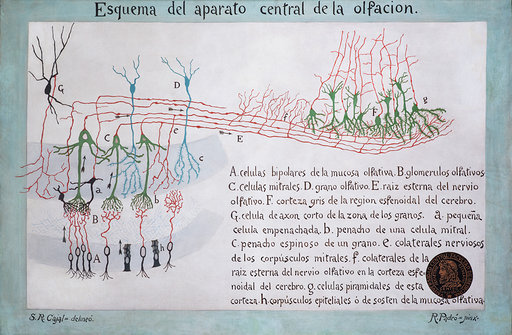 Esquema del aparato central de la olfacion.
G
D
F
g
f
E
C
e
c
a
B
b
A
h
A. celulas bipolares de la mucosa olfativa. B. glomerulos olfativos
C. celulas mitrales. D. grano olfativo. E. raiz esterna del nervio
olfativo. F. corteza gris de la region esfenoidal del cerebro.
G. celula de axon corto de la zona de los granos. a. pequeña
celula empenachada. b. penacho de una celula mitral.
c. penacho espinoso de un grano. e. colaterales nerviosos
de los corpúsculos mitrales. f. colaterales de la
raiz esterna del nervio olfativo en la corteza esfe
noidal del cerebro. g. celulas piramidales de esta
corteza. h. corpúsculos epiteliales ó de sosten de la mucosa olfativa.
S. R. Cajal = delineó.
R. Padró = pinx.